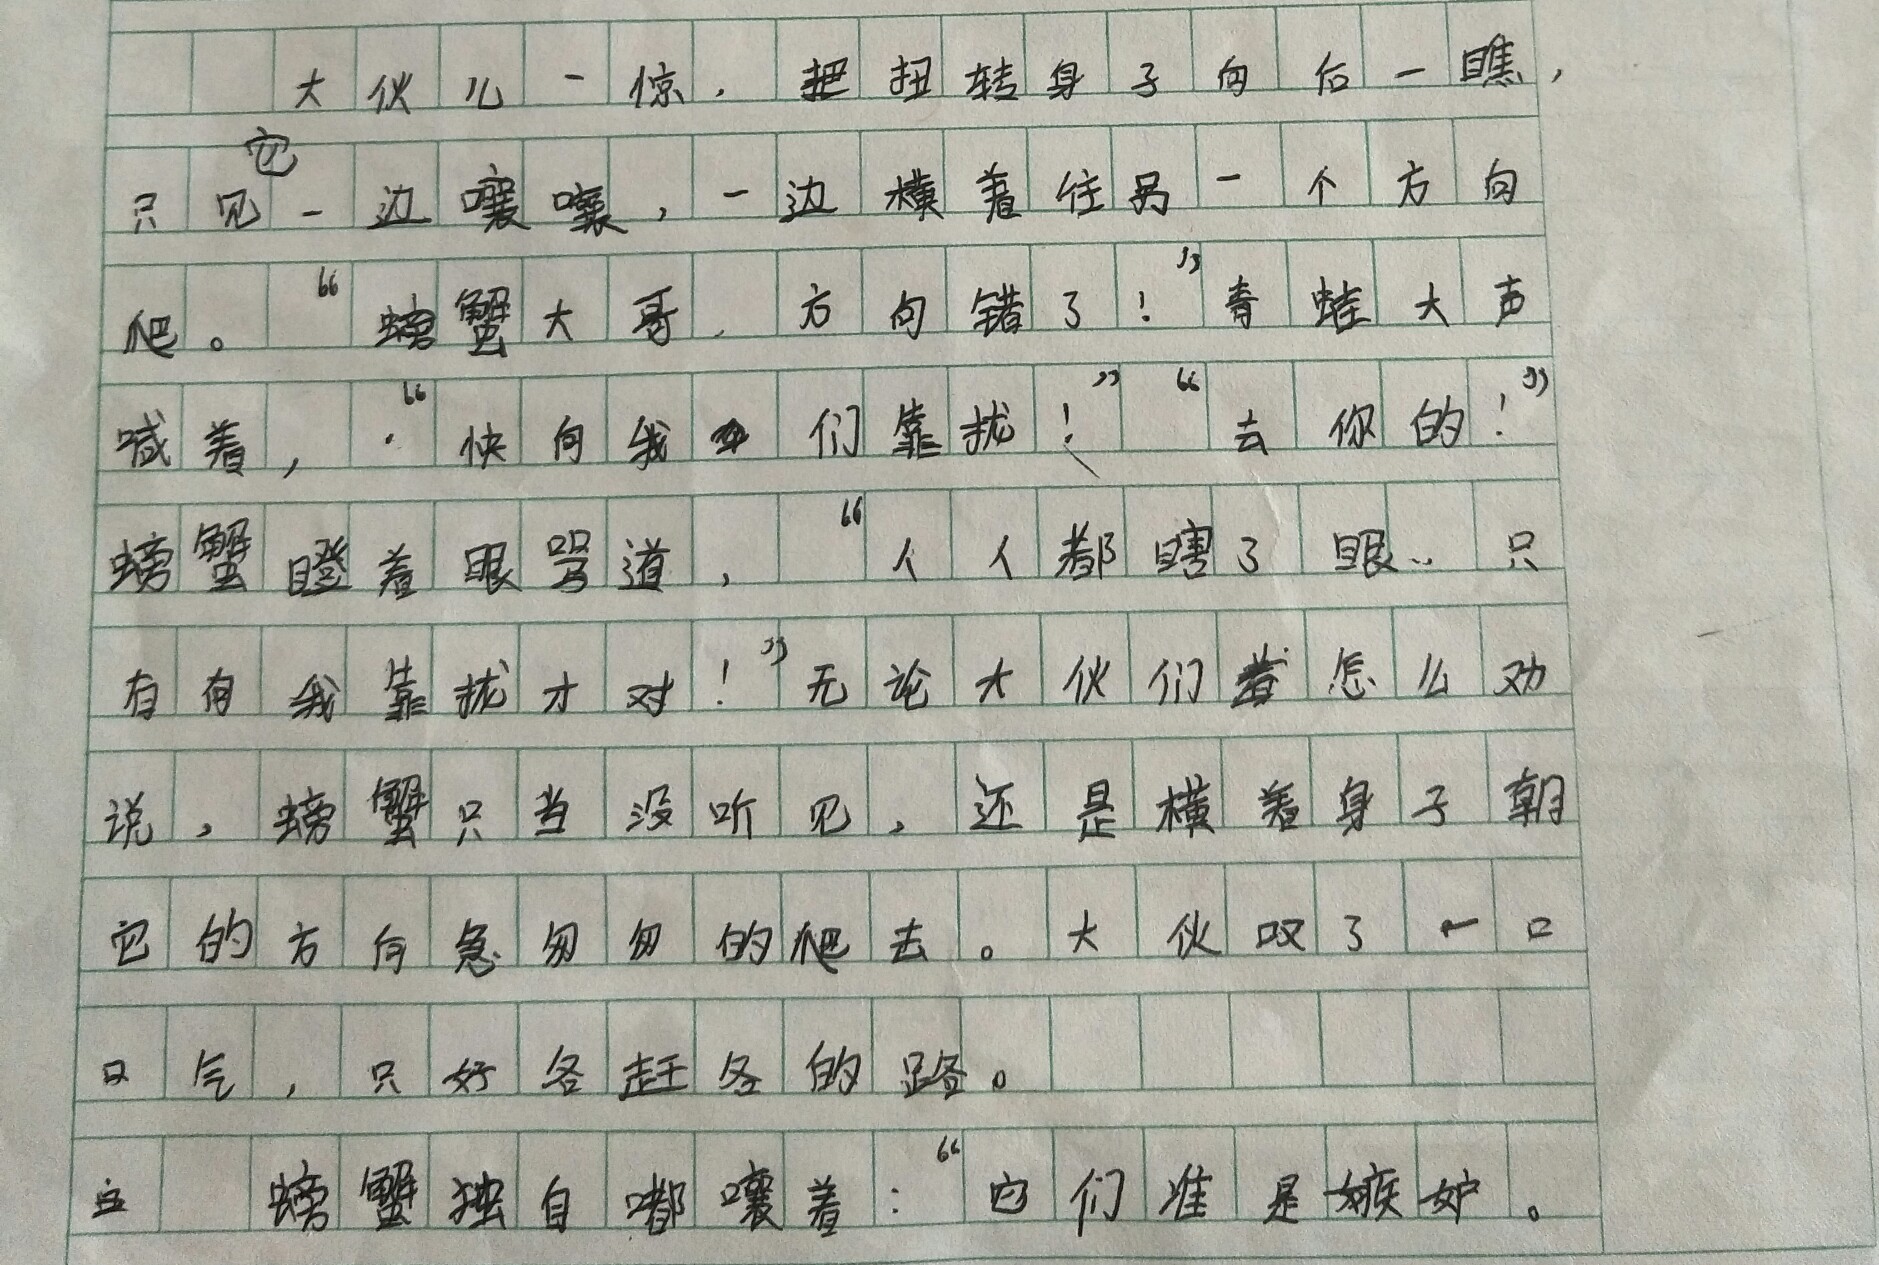 大伙儿一惊，把扭转身子向后一瞧，
只见它一边嚷嚷，一边横着往另一个方向
爬。“螃蟹大哥，方向错了！”青蛙大声
喊着，“快向我们靠拢！”“去你的！”
螃蟹瞪着眼骂道，“人人都瞎了眼..只
有有我靠拢才对！”无论大伙们着怎么劝
说，螃蟹只当没听见，还是横着身子朝
它的方向急匆匆的爬去。大伙叹了一口
口气，只好各赶各的路。
螃蟹独自嘟嚷着：“它们准是嫉妒。